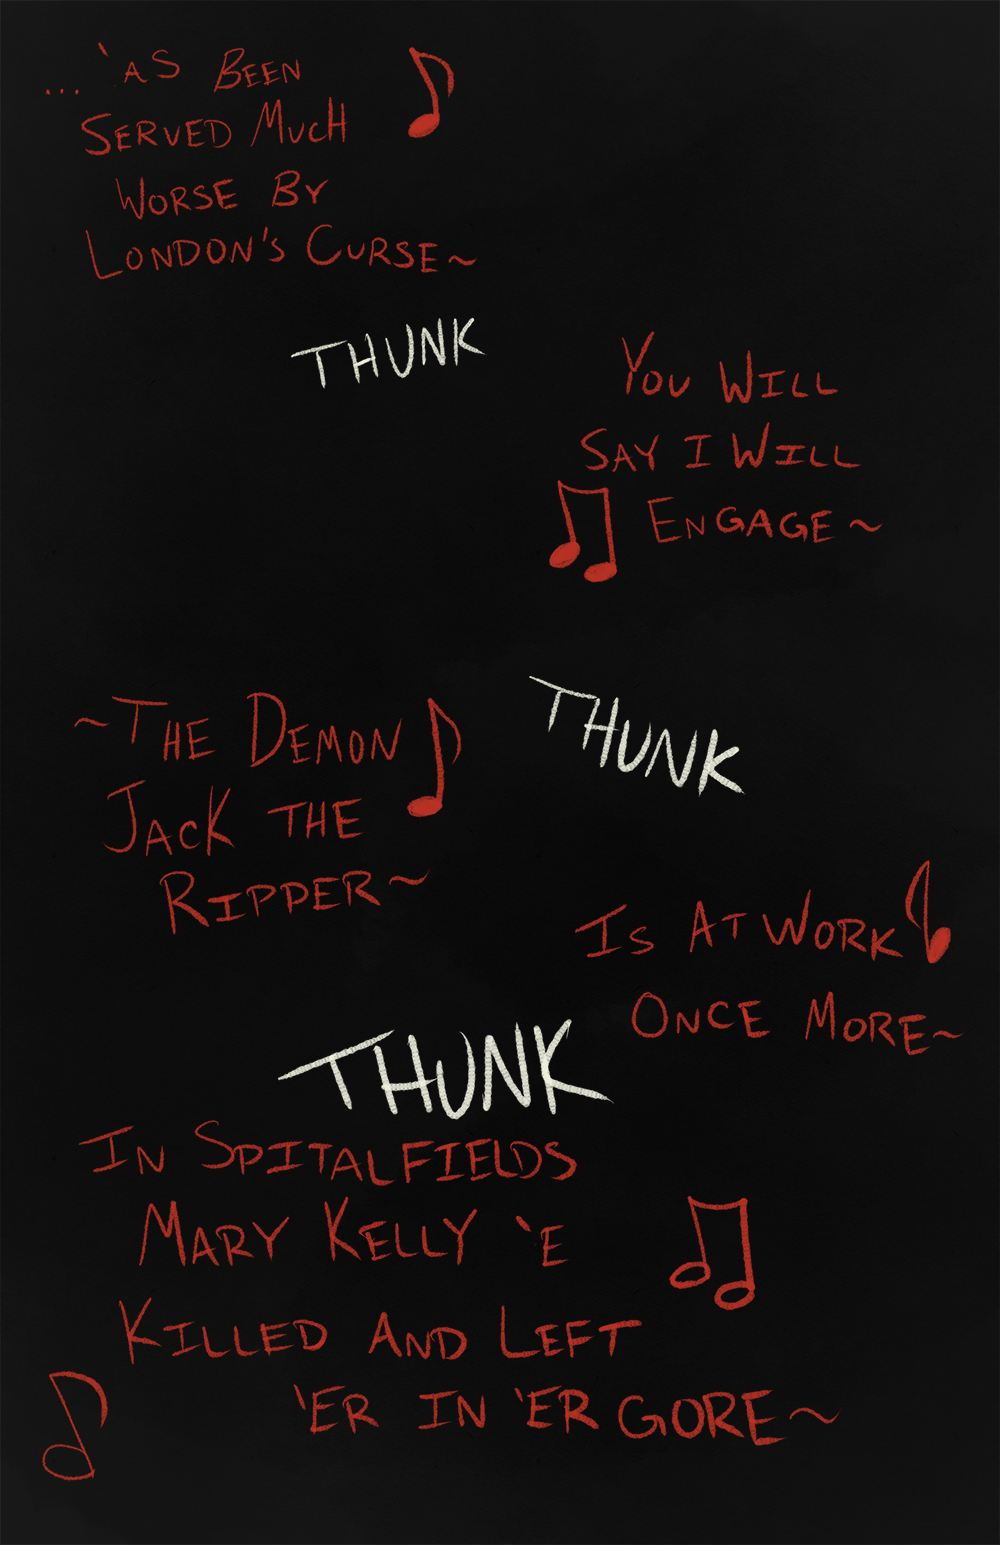 ... 'AS BEEN
SERVED MUCH
WORSE BY
LONDON'S CURSE~
THUNK
YOU WILL
SAY I WILL
ENGAGE~
THUNK
~THE DEMON
JACK THE
RIPPER~
IS AT WORK
ONCE MORE~
THUNK
IN SPITALFIELDS
MARY KELLY 'E
KILLED AND LEFT
'ER IN 'ER GORE~